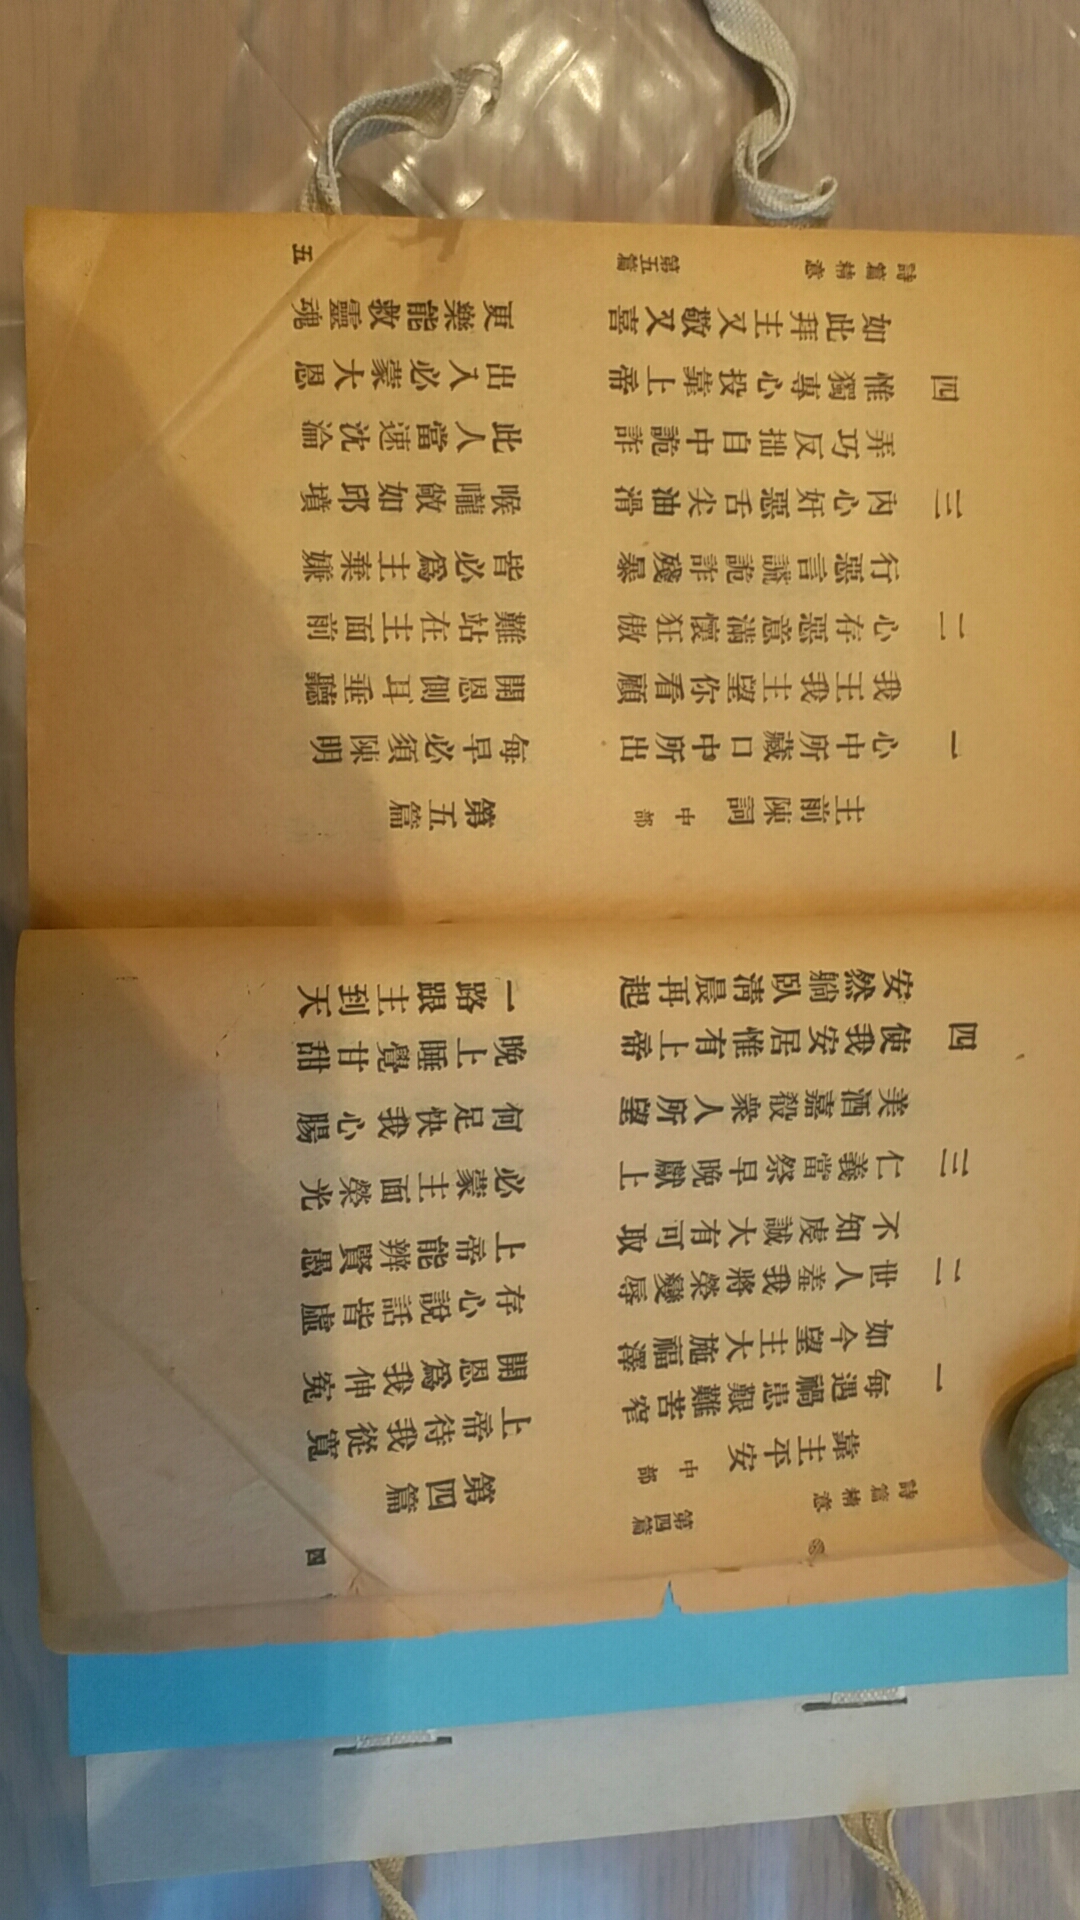 詩篇精意 第四篇 四
靠主平安 中部 第四篇
一 每遇禍患艱難苦窄 上帝待我從寬
如今望主大施福澤 開恩爲我伸冤
二 世人羞我將榮變辱 存心說話皆虛
不知虔誠大有可取 上帝能辨賢愚
三 仁義當祭早晚獻上 必蒙主面榮光
美酒嘉殽衆人所望 何足快我心腸
四 使我安居惟有上帝 晚上睡覺甘甜
安然躺臥清晨再起 一路跟主到天
主前陳詞 中部 第五篇
一 心中所藏口中所出 每早必須陳明
我王我主望你看顧 開恩側耳垂聽
二 心存惡意滿懷狂傲 難站在主面前
行惡言謊詭詐殘暴 皆必爲主棄嫌
三 內心奸惡舌尖油滑 喉嚨敞如邱墳
弄巧反拙自中詭詐 此人當速沈淪
四 惟獨專心投靠上帝 出入必蒙大恩
如此拜主又敬又喜 更樂能救靈魂
詩篇精意 第五篇 五